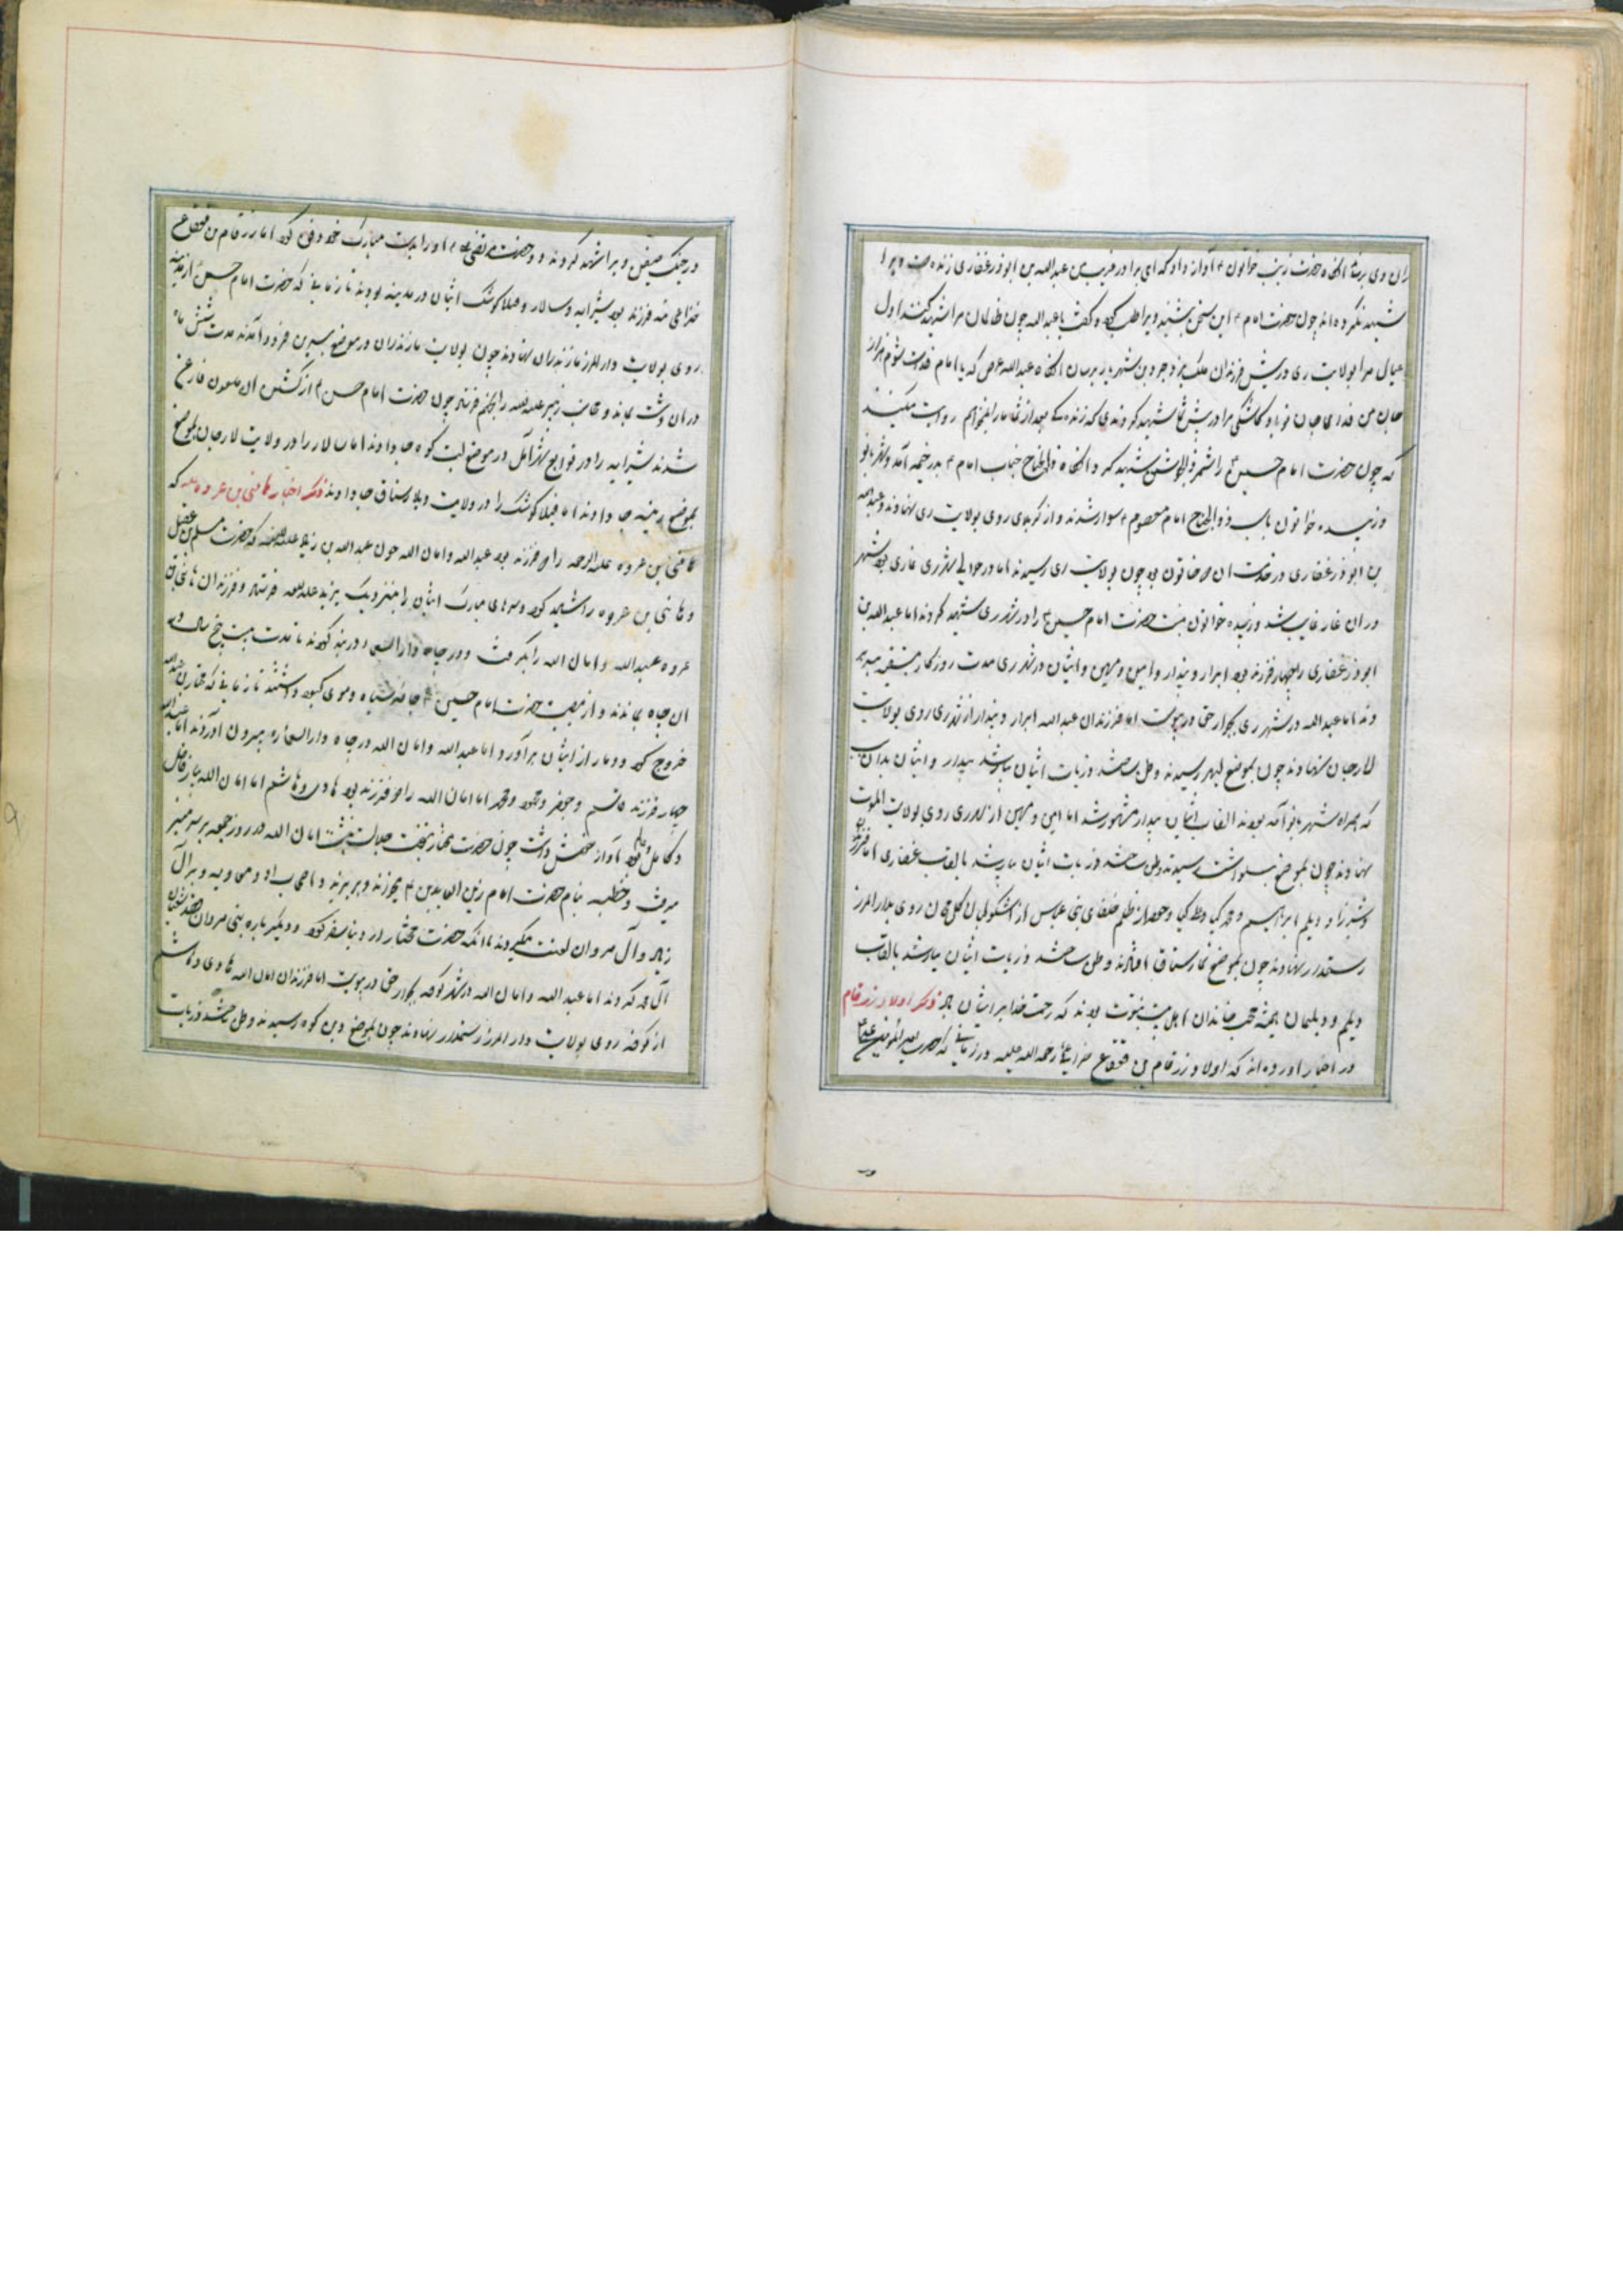 شهید نکرده‌اند چون حضرت امام این سخن بشنید ویرا طلب کرد و گفت یا عبدالله چون ظالمان مرا شهید کنند اول
عیال مرا بولایت ری در پیش فرزندان ملک یزدجرد بن شهریار برسان آنگاه عبدالله عرض که یا امام
جان من فدای جان تو باد کاشکی مرا در پیش شما شهید کردندی که زندگی بعد از شما را نمیخواهم روایت میکنند
که چون حضرت امام حسین را شمر ذی الجوشن شهید کرد آنگاه ذوالجناح جناب امام بدر خیمه آمد و شهربانو
و زبیده خاتون باسب ذوالجناح امام معصوم سوار شدند و از کربلا روی بولایت ری نهادند و عبدالله
بن ابوذر غفاری در خدمت آن خاتون بود چون بولایت ری رسیدند اما در حوالی شهر ری غاری بود شهر
در آن غار غایب شد و زبیده خواتون بنت حضرت امام حسین را در شهر ری شهید کردند اما عبدالله بن
ابوذر غفاری را چهار فرزند بود ابرار و بیدار و امین و مهین و ایشان در شهر ری مدت روزگار بتقیه میبر
دند اما عبدالله در شهر ری بجوار حق در پیوست اما فرزندان عبدالله ابرار و بیدار از شهر ری روی بولایت
لارجان نهادند چون بموضع لهیر رسیدند وطن ساختند و ذریات ایشان بسیار شد بیدار و ایشان بدان سبب
که همراه شهربانو آمده بودند القاب ایشان بیدار مشهور شد اما امین و مهین از شهر ری روی بولایت الموت
نهادند چون بموضع رسیدند وطن ساختند ذریات ایشان بسیار شد بالقاب غفاری اما فرزندان
و دیلم ابراهیم و محمد کیا و مظفر کیا و از ظلم خلفای بنی عباس از روی بدارالمرز
رستمدار نهادند چون بموضع وطن ساختند ذریات ایشان بسیار شد بالقاب
دیلم و دیلمان همیشه محب خاندان اهل بیت نبوت بودند که رحمت خدا بر ایشان باد ذکر اولاد زرقام
در اخبار آورده‌اند که اولاد زرقام بن قعقاع خزاعی رحمه الله علیه در زمانی که حضرت امیرالمؤمنین علی
در جنگ صفین ویرا شهید کردند و حضرت مرتضی علی او را بدست مبارک خود دفن کرد اما زرقام بن قعقاع
خزاعی سه فرزند بود شیرابه و سالار و فیلاکوشک ایشان در مدینه بودند تا زمانی که حضرت امام حسن از مدینه
روی بولایت دارالمرز مازندران نهادند چون بولایت مازندران در موضع فرود آمدند مدت شش ماه
در آن دشت بماند و را بجهنم فرستاد چون حضرت امام حسن از کشتن آن ملعون فارغ
شدند شیرابه را در توابع شهر آمل در موضع لیت کوه جا دادند اما سالار را در ولایت لارجان بموضع
رینه جا دادند اما فیلاکوشک را در ولایت ویلارستاق جا دادند ذکر اخبار هانی بن عروه که
هانی بن عروه علیه الرحمه را دو فرزند بود عبدالله و امان الله چون عبدالله بن زیاد علیه اللعنه که حضرت مسلم بن عقیل
و هانی بن عروه را شهید کرد و سرهای مبارک ایشان را بنزدیک یزید علیه اللعنه فرستاد و فرزندان هانی بن
عروه عبدالله و امان الله را بگرفت و در چاه در بند کردند تا مدت بیست پنج سال در
آن چاه بماندند و از مصیبت حضرت امام حسین جامه سیاه و موی کبود داشتند تا زمانی که مختار
خروج کرد و دمار از ایشان برآورد و اما عبدالله و امان الله در چاه بیرون آوردند اما عبدالله
چهار فرزند قاسم و جعفر و محمود و محمد اما امان الله را دو فرزند بود هادی و هاشم اما امان الله بسیار فاضل
و کامل بود و آواز خوش داشت چون حضرت مختار بتخت جلالت بنشست امان الله در روز جمعه بر سر منبر
میرفت و خطبه بنام حضرت امام زین العابدین میخواندند و بر یزید و اصحاب او و معاویه و بر آل
زیاد و آل مروان لعنت میکردند تا آنکه حضرت مختار از دنیا سفر کرد و دیگر باره بنی مروان
آل محمد کردند اما عبدالله و امان الله در شهر کوفه بجوار حق در پیوست اما فرزندان امان الله هادی و هاشم
از کوفه روی بولایت دارالمرز رستمدار نهادند چون بموضع کوه رسیدند وطن ساختند ذریات